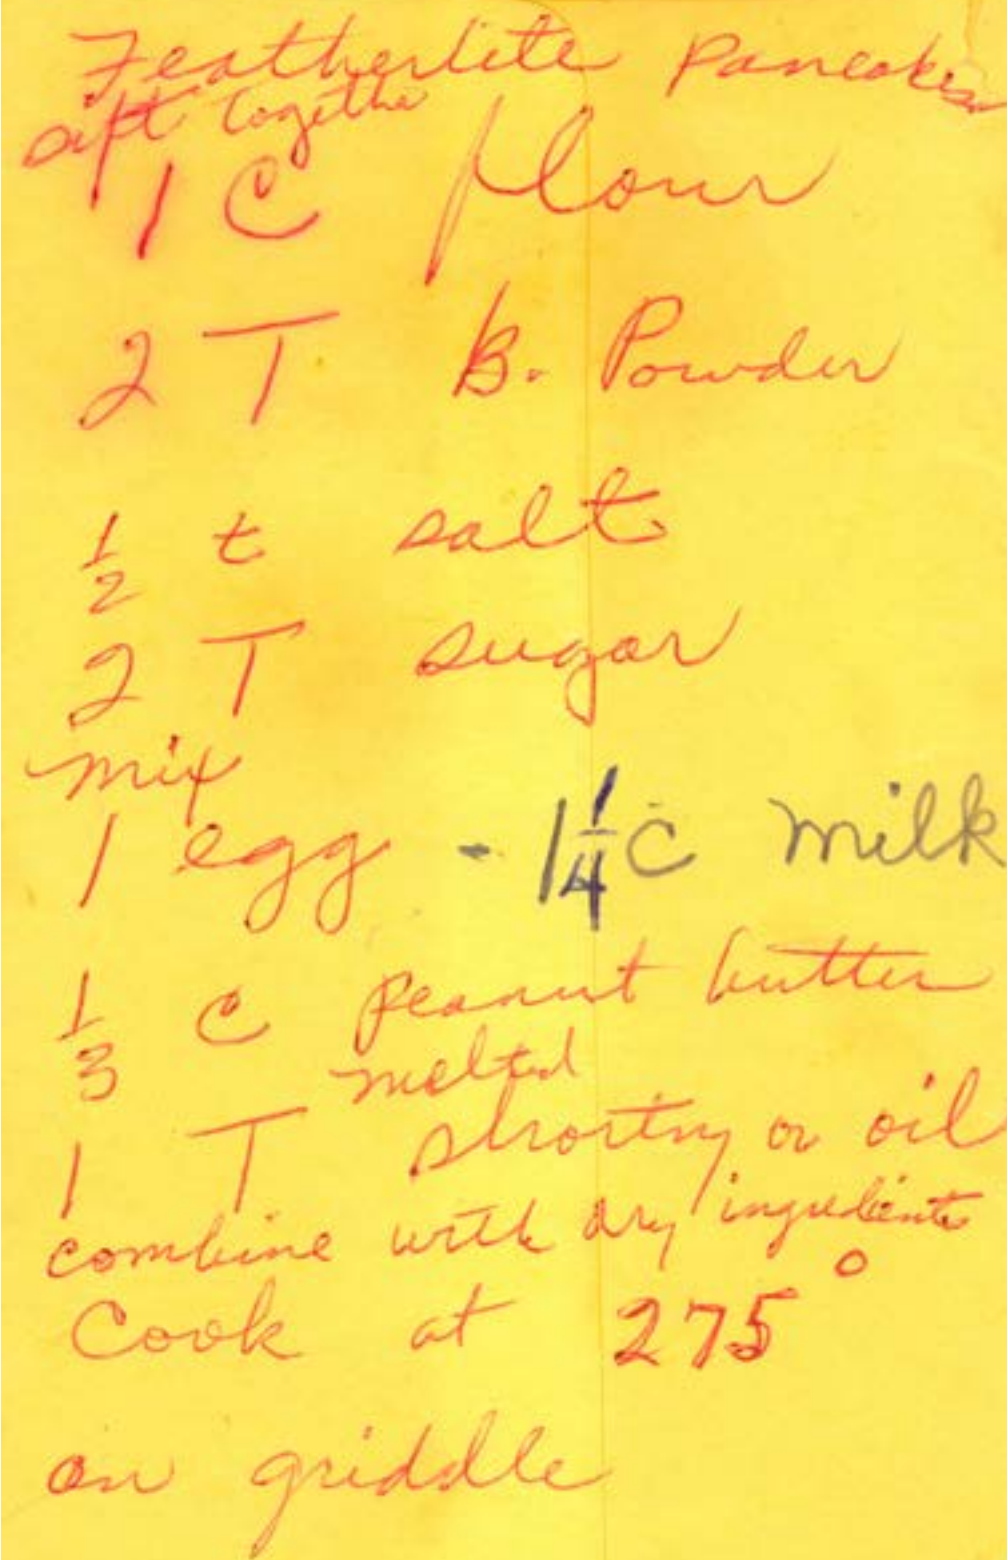 Featherlite Pancakes
sift together
1 C flour
2 T B. Powder
1/2 t salt
2 T sugar
mix
1 egg - 1 1/4 C milk
1/3 C Peanut butter
melted
1 T shortng or oil
combine with dry ingredients
Cook at 275°
on griddle